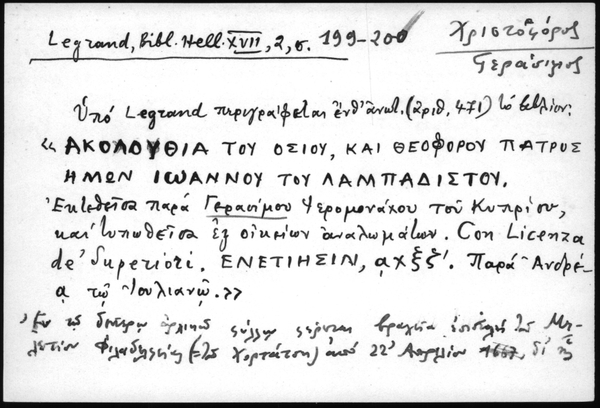 Legrand, Bibl. Hell. XVII, 2, σ. 199-200
Χριστοφόρος
Γεράσιμος
Ὑπό Legrand περιγράφεται ἐνθ' ἀνωτ. (ἀριθ. 471) τό βιβλίον:
« ΑΚΟΛΟΥΘΙΑ ΤΟΥ ΟΣΙΟΥ, ΚΑΙ ΘΕΟΦΟΡΟΥ ΠΑΤΡΟΣ
ΗΜΩΝ ΙΩΑΝΝΟΥ ΤΟΥ ΛΑΜΠΑΔΙΣΤΟΥ.
Ἐκτεθεῖσα παρά Γερασίμου Ἱερομονάχου τοῦ Κυπρίου,
καί τυπωθεῖσα ἐξ οἰκείων ἀναλωμάτων. Con Licenza
de' Superiori. ΕΝΕΤΙΗΣΙΝ, αχξζ'. Παρά Ἀνδρέ-
ᾳ τῷ Ἰουλιανῷ.»
Ἐν τῷ δευτέρῳ φύλλῳ βραχεῖα ἐπιστολή τοῦ Με-
λετίου Φιλαδελφείας (τοῦ Χορτάτση) ἀπό 22 Ἀπριλίου 1667, δι' ἧς